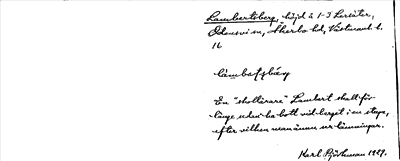 Lambertsberg, höjd å 1-3 Leviter,
Odensvi sn, Åkerbo hd, Västmanl. l.
16
làmbətsbæry
En "skollärare" Lambert skall för
länge sedan ha bott vid berget i en stuga,
efter vilken man ännu ser lämningar.
Karl 1929.